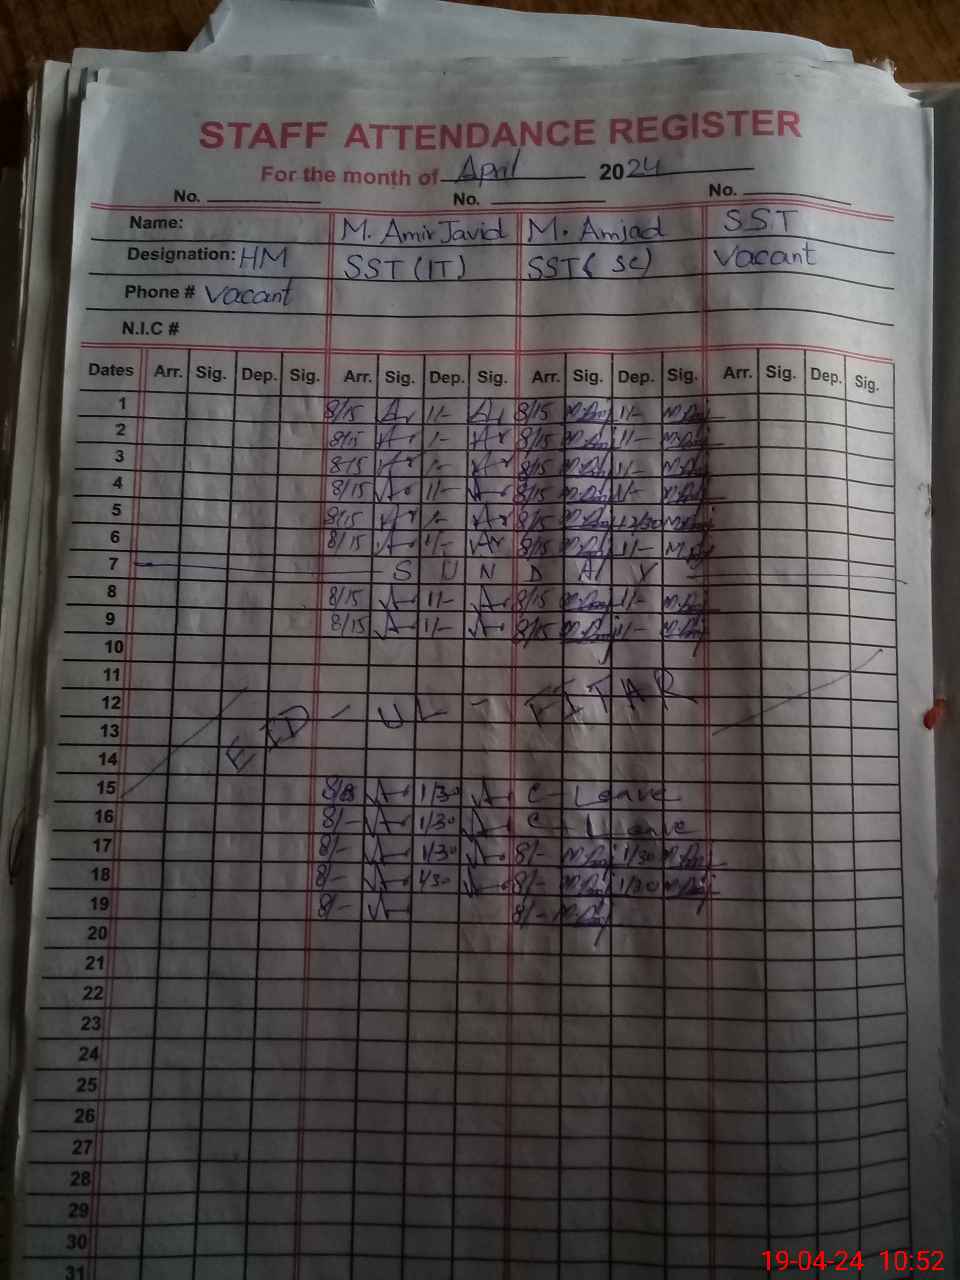 STAFF ATTENDANCE REGISTER
For the month of April 2024
No. No. No.
Name: M. Amir Javid M. Amjad SST
Designation: HM SST (IT) SST (SC) Vacant
Phone # Vacant
N.I.C #
Dates Arr. Sig. Dep. Sig. Arr. Sig. Dep. Sig. Arr. Sig. Dep. Sig. Arr. Sig. Dep. Sig.
1 8/15 1/- 8/15 1/-
2 8/15 1/- 8/15 1/-
3 8/15 1/- 8/15 1/-
4 8/15 1/- 8/15 1/-
5 8/15 1/- 8/15 12/30
6 8/15 1/- 8/15 1/-
7 SUNDAY
8 8/15 1/- 8/15 1/-
9 8/15 1/- 8/15 1/-
10
11
12 EID-UL-FITAR
13
14
15 1/30 C-Leave
16 8/- 1/30 C-Leave
17 8/- 1/30 8/- 1/30
18 8/- 1/30 8/- 1/30
19 8/- 8/-
20
21
22
23
24
25
26
27
28
29
30
31
19-04-24 10:52